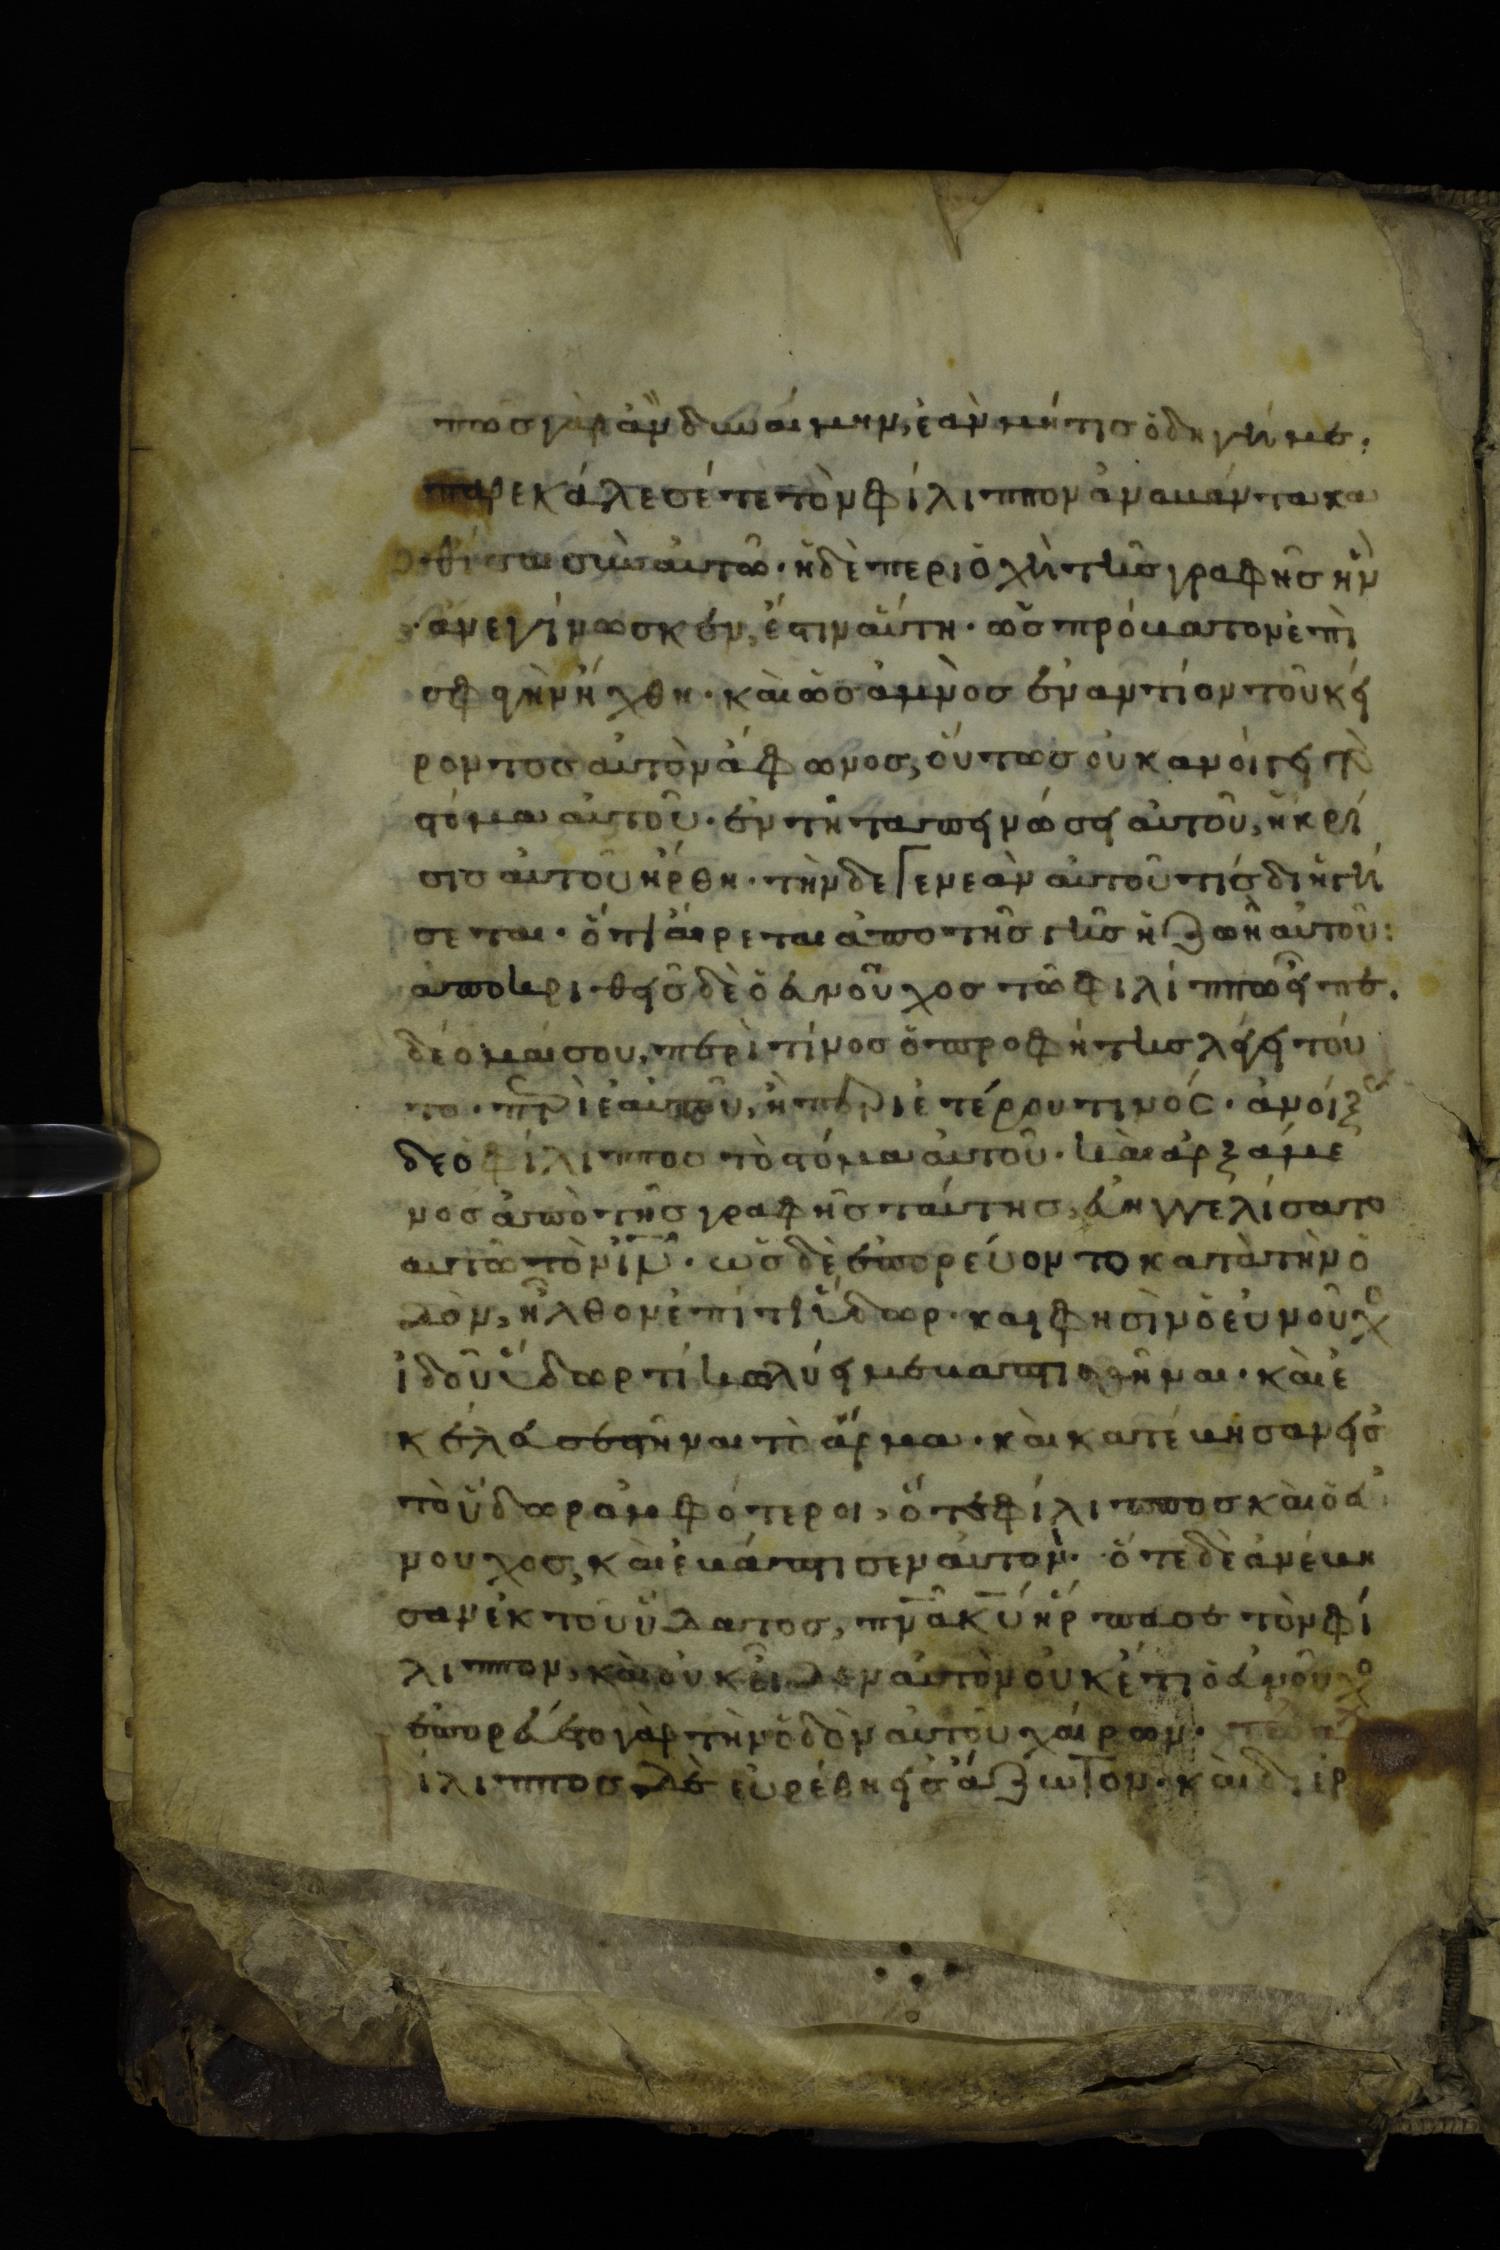 πῶσ γὰρ ἂν δυναίμην, ἐὰν μή τισ ὁδηγήι με;
παρεκάλεσέ τε τὸν φίλιππον ἀναβάντα κα
θίσαι σὺν αὐτῶ· ἡ δὲ περιοχὴ τῆσ γραφῆσ ἣν
ἀνεγίνωσκεν, ἐστιν αὕτη· ὡσ πρόβατον ἐπὶ
σφαγὴν ἤχθη· καὶ ὡσ ἀμνὸσ ἐναντίον τοῦ κεί
ροντοσ αὐτὸν ἄφωνοσ, οὕτωσ οὐκ ἀνοίγει τὸ
στόμα αὐτοῦ· ἐν τῆ ταπεινώσει αὐτοῦ, ἡ κρί
σισ αὐτοῦ ἤρθη· τὴν δε γενεὰν αὐτοῦ τίσ διηγή
σεται· ὅτι αἴρεται ἀπο τῆσ γῆσ ἡ ζωὴ αὐτοῦ:
ἀποκριθεὶσ δὲ ὁ εὐνοῦχοσ τῶ φιλίππω εἶπε.
δέομαί σου, περὶ τίνοσ ὁ προφήτησ λέγει τοῦ
το· περὶ ἑαυτοῦ, ἢ περὶ ἑτέρου τινόσ· ἀνοίξασ
δε ὁ φίλιπποσ τὸ στόμα αὐτοῦ· καὶ ἀρξάμε
νοσ ἀπὸ τῆσ γραφῆσ ταύτησ, εὐηγγελίσατο
αυτῶ τὸν ιν· ὡσ δὲ ἐπορεύοντο κατὰ τὴν ὁ
δὸν, ἦλθον ἐπί τι ὕδωρ· και φησὶν ὁ εὐνοῦχο
ἰδοῦ ὕδωρ τί κωλύει με βαπτισθῆναι· καὶ ἐ
κέλευσε στῆναι τὸ ἅρμα· καὶ κατέβησαν εἰσ
τὸ ὕδωρ ἀμφότεροι, ὅ τε φίλιπποσ καὶ ὁ εὐ
νουχοσ, καὶ ἐβάπτισεν αὐτον· ὅτε δὲ ἀνέβη
σαν ἐκ τοῦ ὕδατοσ, πνα κυ ἥρπασε τὸν φί
λιππον, καὶ οὐκ εἶδεν αὐτὸν οὐκέτι ὁ εὐνοῦχο
ἐπορεύετο γὰρ τὴν ὁδὸν αὐτοῦ χαίρων·
ίλιπποσ δὲ εὑρέθη εἰσ ἄζωτον· καὶ διερ